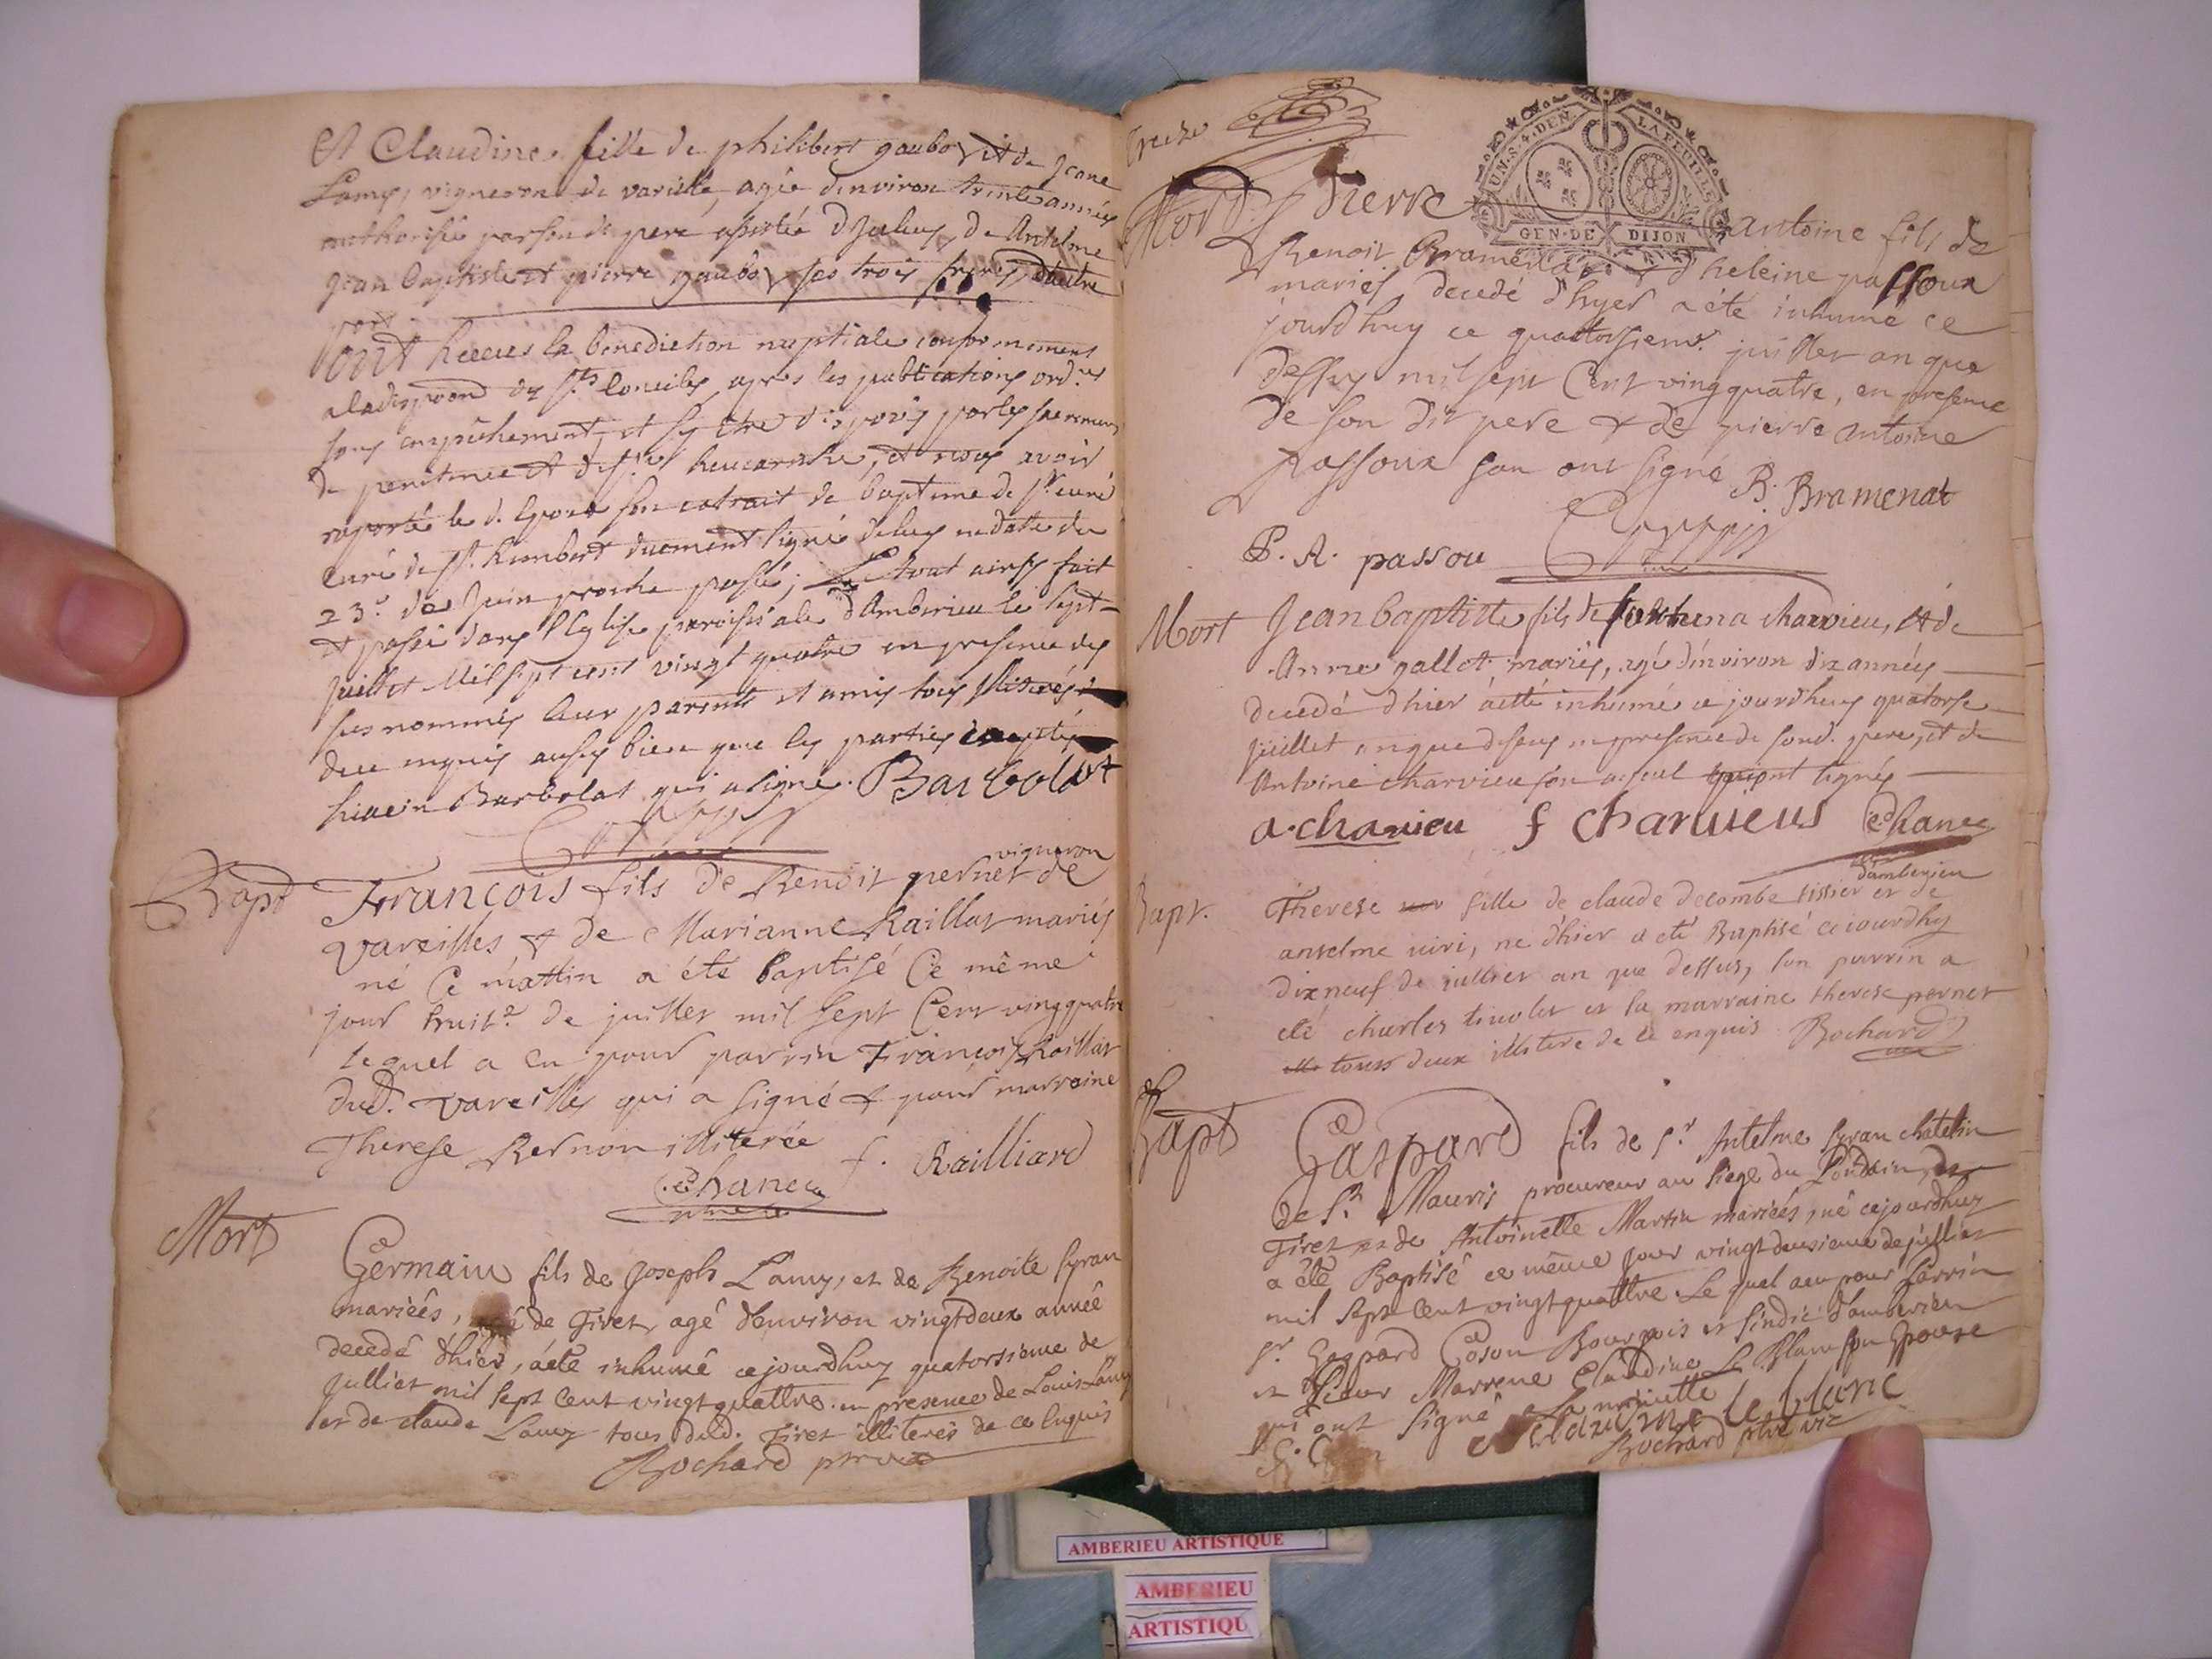 Et Claudine fille de philibert gaubo dit de Jeane
Lamy, vigneron de varielle, agée denviron trente années
authorisée par son d. pere assistée d'yceluy, de Antelme
Jean baptiste et pierre gaubo ses trois freres d'autre
part
ont receus la benediction nuptiale conformement
a la dispoon des Sts Conciles, apres les publications ordres
sans empechement, et s'y être disposés par les sacremens
de penitence et de ste heucaristie, et nous avoir
raporté le d. Epoux son extrait de baptême de sr curé
curé de St. Rambert duement signé de luy en date du
23e de Juin proche passé; Le tout ainsy fait
et passé dans l'Eglise paroissiale d'Amberieu le sept
juillet Mil sept cent vingt quatre en presence des
sus nommés leur parents et amis tous illiterés
de ce enquis aussy bien que les parties excepté
Barbolat qui a signé. Barbolat
Bapt
vigneron
François fils de Benoit pernet de
Vareilles & de Marianne Raillat mariés
né Ce mattin a été baptisé Ce même
jour huite de juillet mil sept Cent vingquatre
lequel a eu pour parrin François Raillat
dud. vareilles qui a signé & pour marraine
Therese Bernon illiterée
f. Railliard
Chanes
Mort
Germain fils de Joseph Lamy, et de Benoite Syran
mariées, de Tiret, agé d'environ vingtdeux année
decedé d'hier, a été inhumé cejourdhuy quatorsieme de
Julliet mil sept cent vingtquattre en presence de Louis Lamy
et de claude Lamy tous dud. Tiret illiterés de ce Enquis
Bochard ptre
Treize
UN.S.4.DEN. LA FEUILLE
GEN.DE DIJON
Mort
Pierre antoine fils de
Benoit Bramenat & d'heleine passoux
mariés, decedé d'hyer a été inhumé ce
jourd'huy ce quattorsieme juillet an que
dessus mil sept Cent vingquatre, en presence
de son dit pere & de pierre antoine
passoux qui ont signé B. Bramenat
P. A. passou
Mort
Jean baptiste fils de charvieu, et de
Anne gallet mariés, agé d'environ dix années
decedé d'hier a etté inhumé ce jourdhuy quatorse
juillet an que dessus en presence de sond. pere, et de
Antoine charvieu son aieul qui ont signés
a. charvieu f charuieus Chanes
Bapt.
d'amberieu
Therese fille de claude decombe tissier et de
anselme uiri, né d'hier a eté Baptisé ce iourdhy
dixneuf de iulliet an que dessus, son parrin a
eté charles tinolet et la marraine therese pernet
tours deux illiteré de ce enquis Bochard
Bapt
Gaspard fils de Sr Antelme Syran chatelin
de St Mauris procureur au siege du Londain, de
Tiret et de Antoinette Martin mariées, né cejourdhuy
a été Baptisé ce même jour vingtdeusieme de julliet
mil sept Cent vingtquattre. Le quel a eu pour Parrin
sr. Gaspard Coson Bourgois et sindic d'amberieu
et pour Marrene Claudine Le Blanc son Epouse
qui ont signé La minutte
claudine le blanc
Bochard ptre vic
AMBERIEU ARTISTIQUE
AMBERIEU
ARTISTIQU